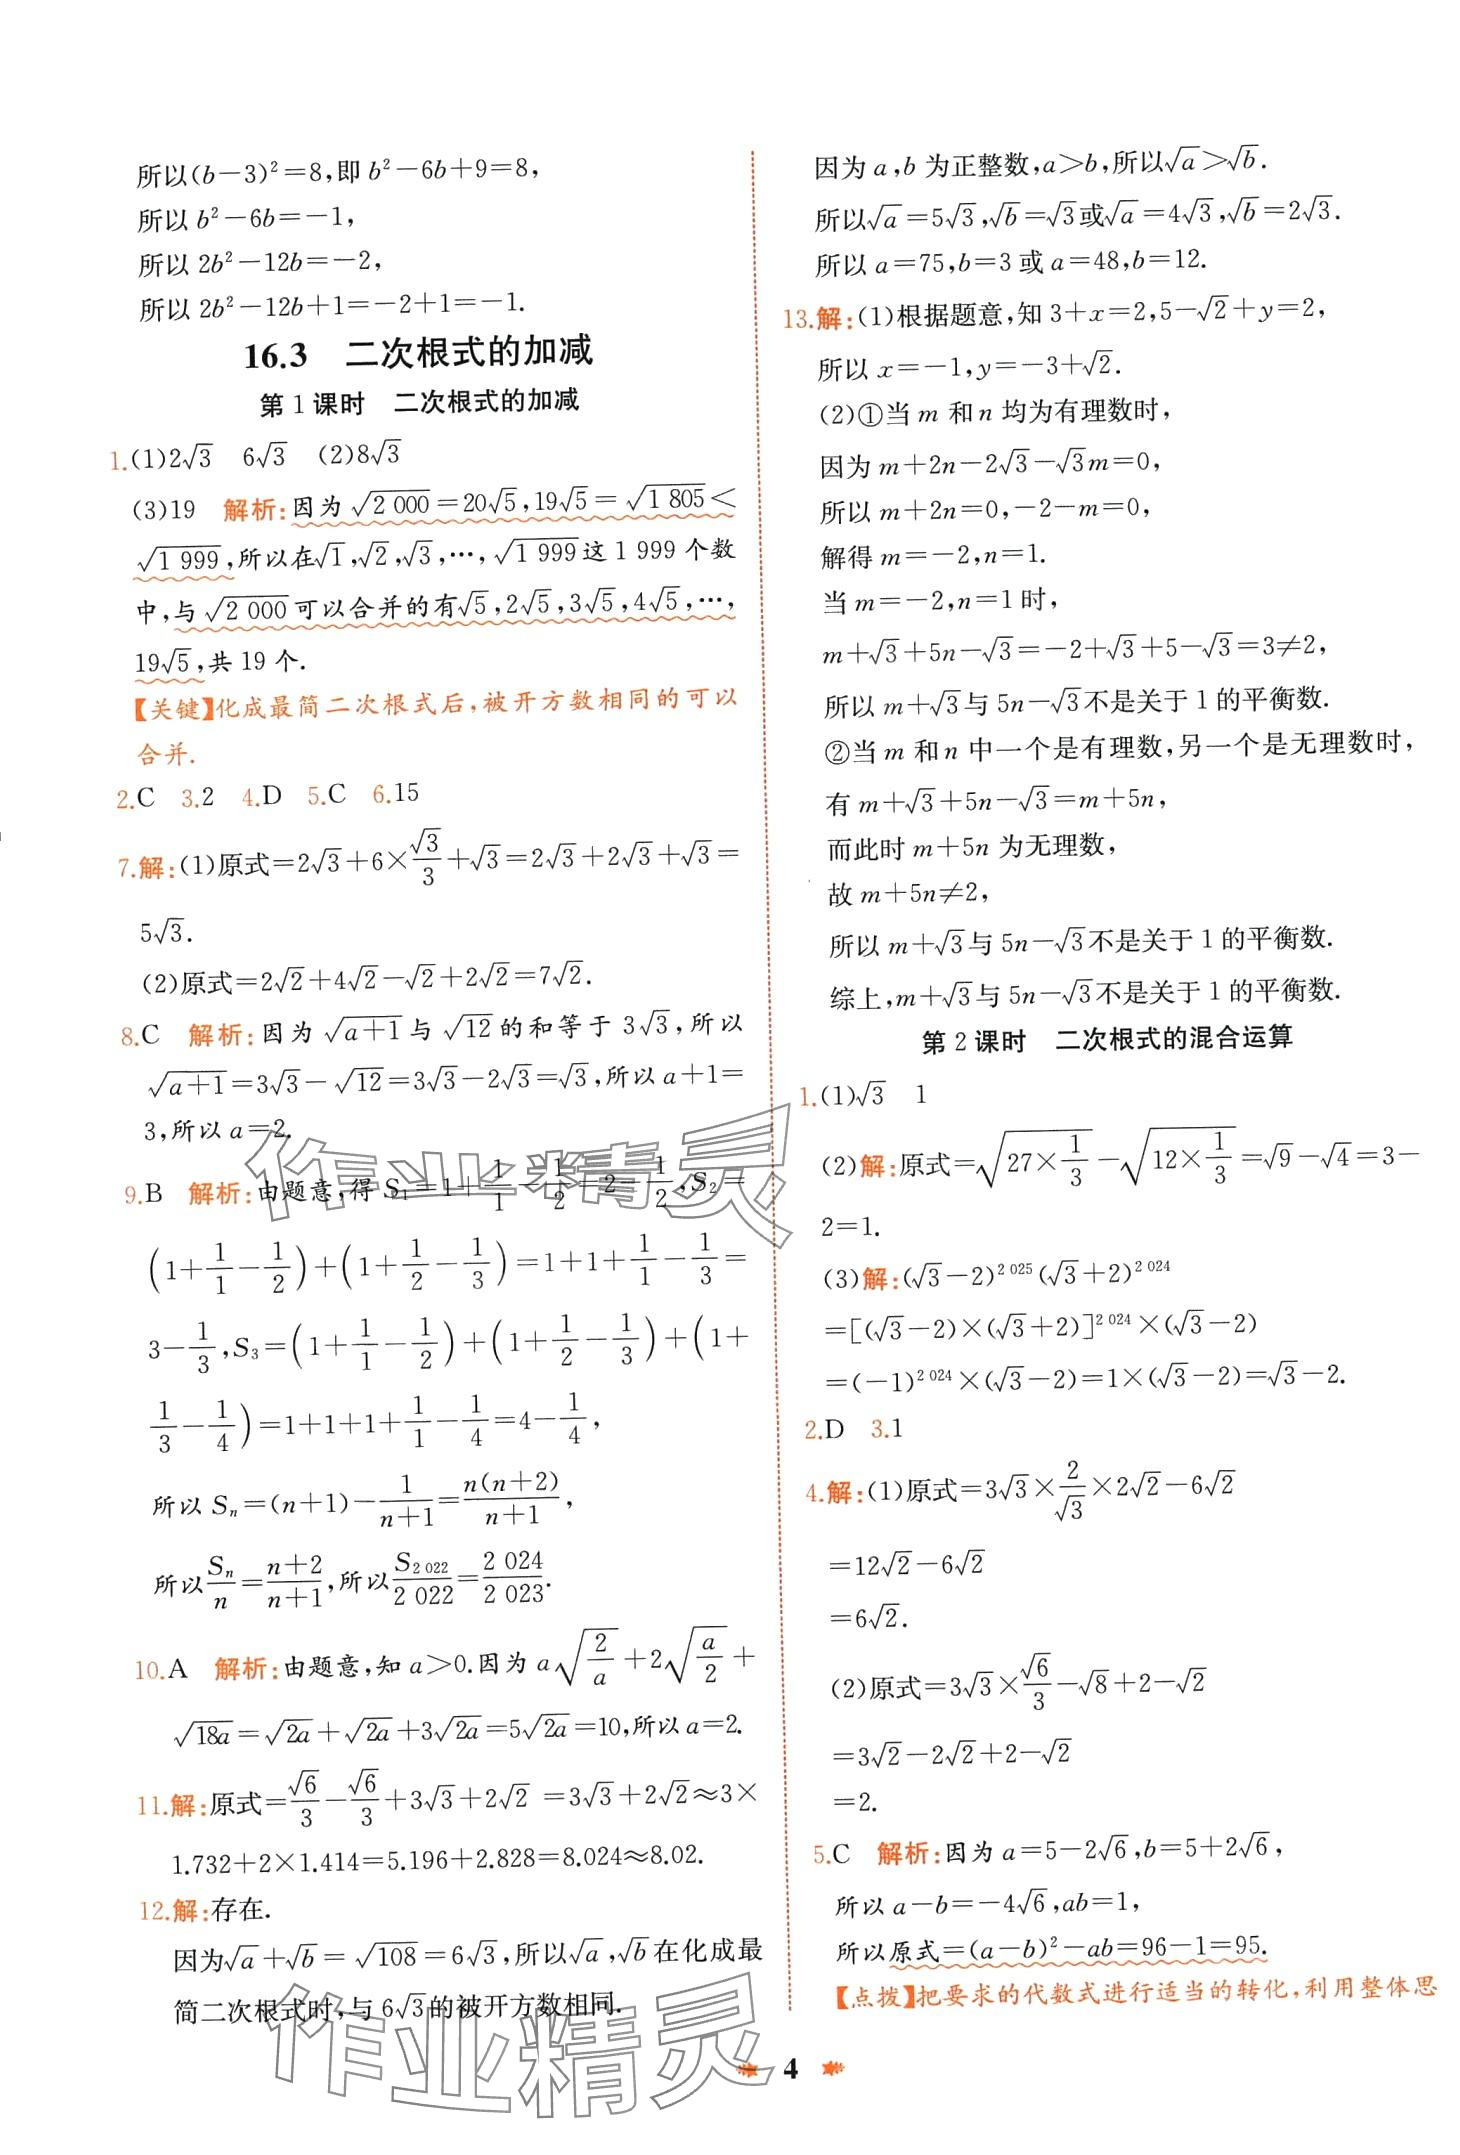 所以(b－3)²＝8,即 b²－6b＋9＝8,
所以 b²－6b＝－1,
所以 2b²－12b＝－2,
所以 2b²－12b＋1＝－2＋1＝－1.
16.3 二次根式的加减
第 1 课时 二次根式的加减
1.(1)2√3 6√3 (2)8√3
(3)19 解析:因为 √(2 000)＝20√5,19√5＝√(1 805)＜
√(1 999),所以在√1,√2,√3,…,√(1 999)这 1 999 个数
中,与√(2 000)可以合并的有√5,2√5,3√5,4√5,…,
19√5,共 19 个.
【关键】化成最简二次根式后,被开方数相同的可以
合并.
2.C 3.2 4.D 5.C 6.15
7.解:(1)原式＝2√3＋6×√3/3＋√3＝2√3＋2√3＋√3＝
5√3.
(2)原式＝2√2＋4√2－√2＋2√2＝7√2.
8.C 解析:因为 √(a＋1)与 √12的和等于 3√3,所以
√(a＋1)＝3√3－√12＝3√3－2√3＝√3,所以 a＋1＝
3,所以 a＝2.
9.B 解析:由题意,得 S₁＝1＋1/1－1/2＝2－1/2,S₂＝
(1＋1/1－1/2)＋(1＋1/2－1/3)＝1＋1＋1/1－1/3＝
3－1/3,S₃＝(1＋1/1－1/2)＋(1＋1/2－1/3)＋(1＋
1/3－1/4)＝1＋1＋1＋1/1－1/4＝4－1/4,
所以 Sₙ＝(n＋1)－1/(n＋1)＝n(n＋2)/(n＋1),
所以Sₙ/n＝(n＋2)/(n＋1),所以S₂ ₀₂₂/2 022＝2 024/2 023.
10.A 解析:由题意,知 a＞0.因为 a√(2/a)＋2√(a/2)＋
√(18a)＝√(2a)＋√(2a)＋3√(2a)＝5√(2a)＝10,所以 a＝2.
11.解:原式＝√6/3－√6/3＋3√3＋2√2＝3√3＋2√2≈3×
1.732＋2×1.414＝5.196＋2.828＝8.024≈8.02.
12.解:存在.
因为√a＋√b＝√108＝6√3,所以√a,√b在化成最
简二次根式时,与 6√3的被开方数相同.
因为 a,b 为正整数,a＞b,所以√a＞√b.
所以√a＝5√3,√b＝√3或√a＝4√3,√b＝2√3.
所以 a＝75,b＝3 或 a＝48,b＝12.
13.解:(1)根据题意,知 3＋x＝2,5－√2＋y＝2,
所以 x＝－1,y＝－3＋√2.
(2)①当 m 和 n 均为有理数时,
因为 m＋2n－2√3－√3m＝0,
所以 m＋2n＝0,－2－m＝0,
解得 m＝－2,n＝1.
当 m＝－2,n＝1 时,
m＋√3＋5n－√3＝－2＋√3＋5－√3＝3≠2,
所以 m＋√3与 5n－√3不是关于 1 的平衡数.
②当 m 和 n 中一个是有理数,另一个是无理数时,
有 m＋√3＋5n－√3＝m＋5n,
而此时 m＋5n 为无理数,
故 m＋5n≠2,
所以 m＋√3与 5n－√3不是关于 1 的平衡数.
综上,m＋√3与 5n－√3不是关于 1 的平衡数.
第 2 课时 二次根式的混合运算
1.(1)√3 1
(2)解:原式＝√(27×1/3)－√(12×1/3)＝√9－√4＝3－
2＝1.
(3)解:(√3－2)² ⁰²⁵(√3＋2)² ⁰²⁴
＝[(√3－2)×(√3＋2)]² ⁰²⁴×(√3－2)
＝(－1)² ⁰²⁴×(√3－2)＝1×(√3－2)＝√3－2.
2.D 3.1
4.解:(1)原式＝3√3×2/√3×2√2－6√2
＝12√2－6√2
＝6√2.
(2)原式＝3√3×√6/3－√8＋2－√2
＝3√2－2√2＋2－√2
＝2.
5.C 解析:因为 a＝5－2√6,b＝5＋2√6,
所以 a－b＝－4√6,ab＝1,
所以原式＝(a－b)²－ab＝96－1＝95.
【点拨】把要求的代数式进行适当的转化,利用整体思
4
作业精灵
作业精灵